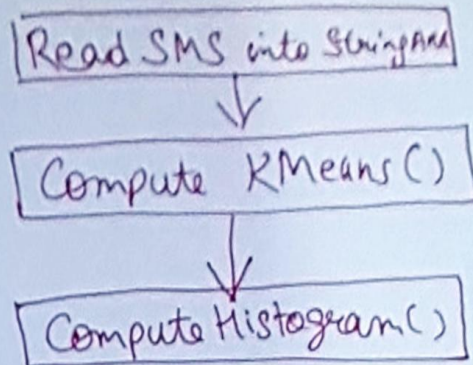 Read SMS into StringArr
Compute KMeans()
ComputeHistogram()